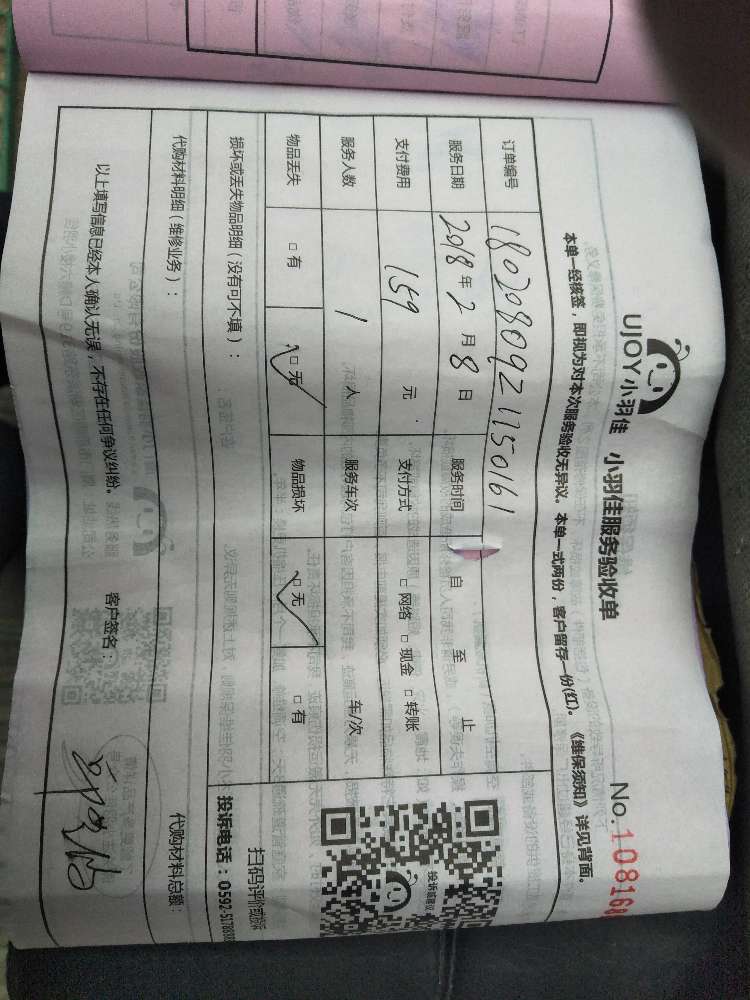 UJOY小羽佳 小羽佳服务验收单
No.108166
本单一经核签，即视为对本次服务验收无异议。本单一式两份，客户留存一份(红)。《维保须知》详见背面。
订单编号 1802080921150161
服务日期 2018年2月8日 服务时间 自 至 止
支付费用 159 元 支付方式 □网络 □现金 □转账
服务人数 1 人 服务车次 车/次
物品丢失 □有 □无 物品损坏 □无 □有
损坏或丢失物品明细（没有可不填）：
投诉或建议
扫码评价或投诉
投诉电话：0592-517
代购材料明细（维修业务）： 代购材料总额：
以上填写信息已经本人确认无误，不存在任何争议纠纷。 客户签名：